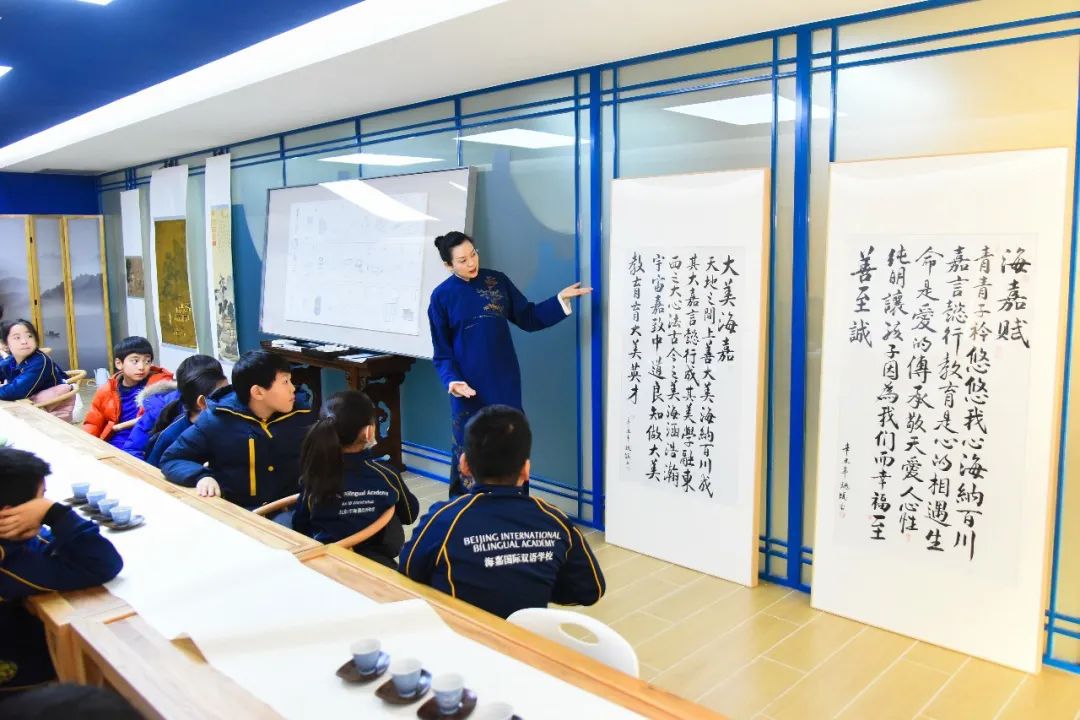 大美海嘉
天地之间上善大美海納百川成
其大嘉言懿行成其美學融東
西之大心法古今之美海涵浩瀚
宇宙嘉致中道良知做大美
教育育大美英才
海嘉賦
青青子衿悠悠我心海納百川
嘉言懿行教育是心的相遇生
命是愛的傳承敬天愛人心性
純明讓孩子因為我们而幸福至
善至誠
Bilingual Academy
BEIJING INTERNATIONAL
BILINGUAL ACADEMY
海嘉国际双语学校